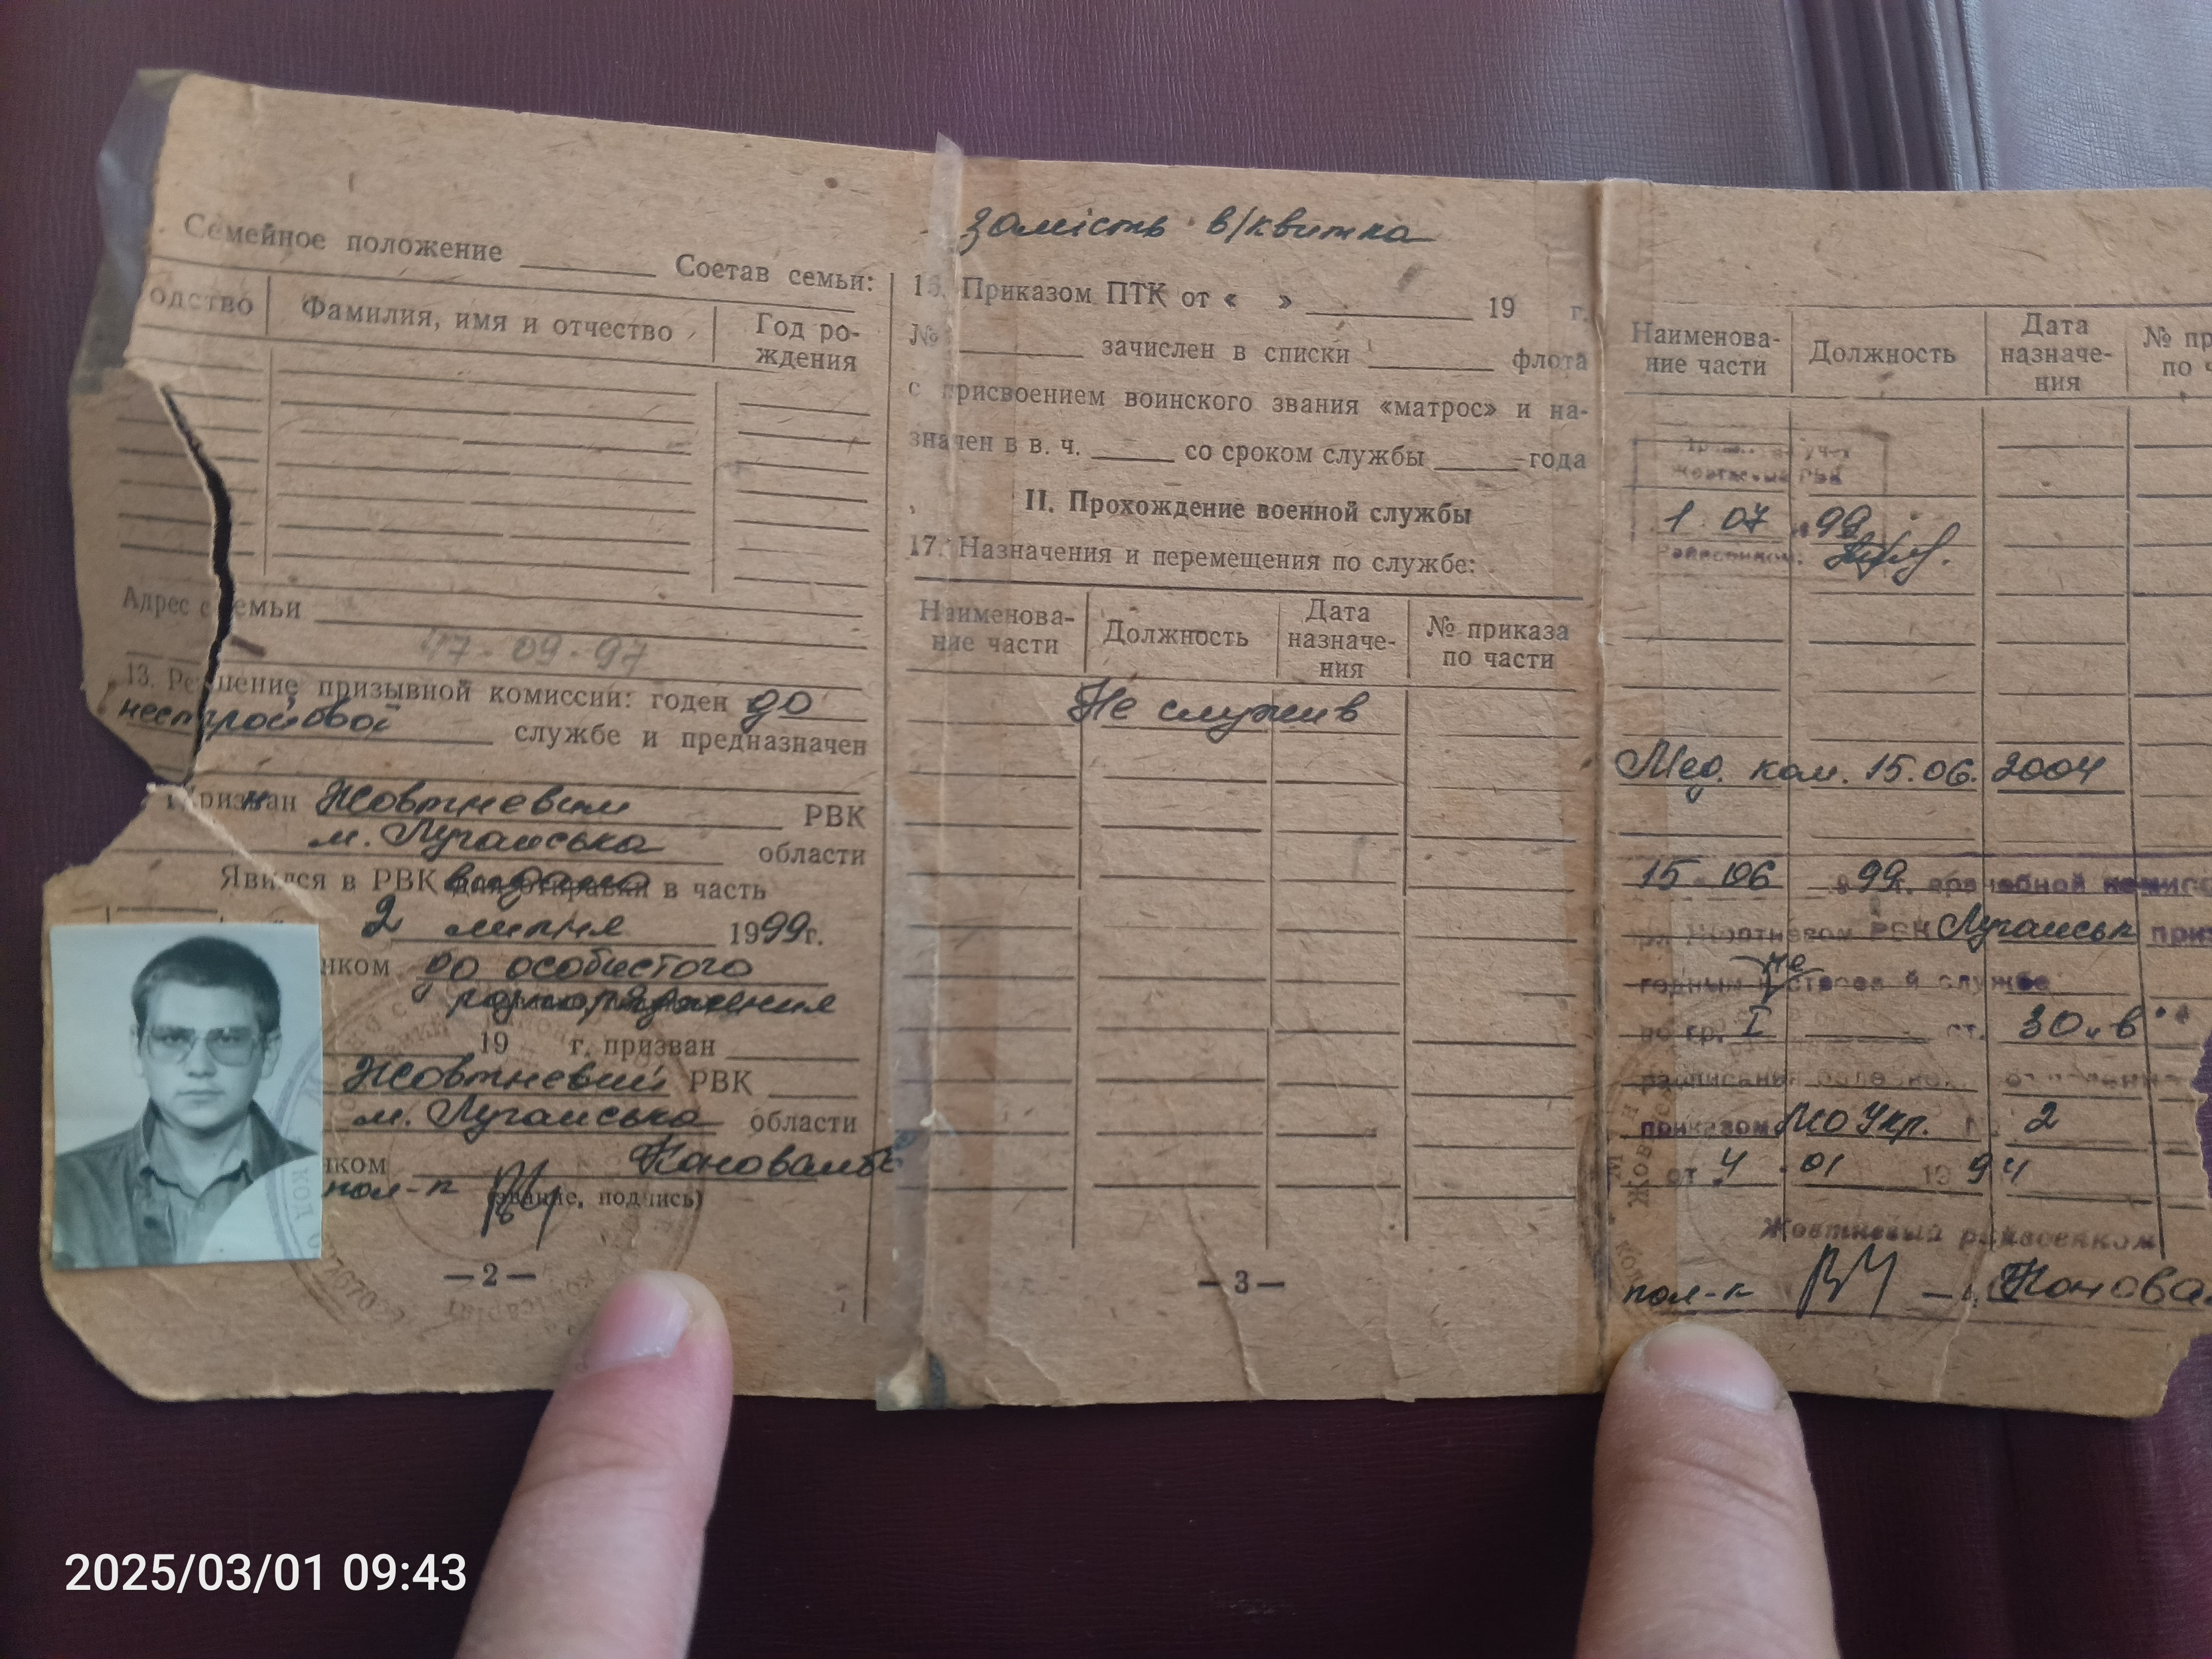 Семейное положение Состав семьи:
одство Фамилия, имя и отчество Год ро-
ждения
Адрес семьи
17-09-97
13. Решение призывной комиссии: годен до
нестройовой службе и предназначен
Призван Жовтневим РВК
м. Луганська области
Явился в РВК видано в часть
2 липня 1999г.
нком до особистого
розпорядження
19 г. призван
Жовтневий РВК
м. Луганська области
нком
пол-к (звание, подпись)
—2—
замість в/квитка
16. Приказом ПТК от « » 19 г.
№ зачислен в списки флота
с присвоением воинского звания «матрос» и на-
значен в в. ч. со сроком службы года
II. Прохождение военной службы
17. Назначения и перемещения по службе:
Наименова-
ние части Должность Дата
назначе-
ния № приказа
по части
Не служив
—3—
Наименова-
ние части Должность Дата
назначе-
ния № пр
по ч
1 07 99
Мед. ком. 15.06. 2004
15 06 99 г. врачебной комисс
Жовтневом РВК Луганськ приз
годным не строевой службе
по гр. I ст. 30 „в“
расписания болезней
приказом МО Укр. 2
от 4 01 1994
Жовтневый райвоенком
пол-к Конова
2025/03/01 09:43